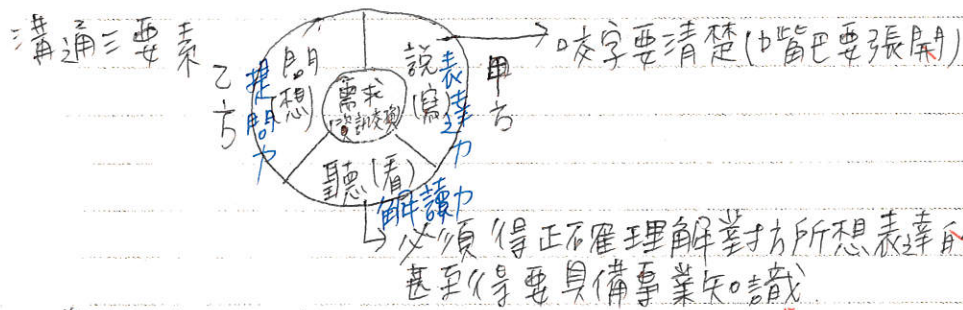 溝通三要素
乙方
提問力
問
(想)
需求
(資訊交換)
說
(寫)
表達力
甲方
咬字要清楚(嘴巴要張開)
聽(看)
解讀力
必須得正確理解對方所想表達的
甚至得要具備專業知識